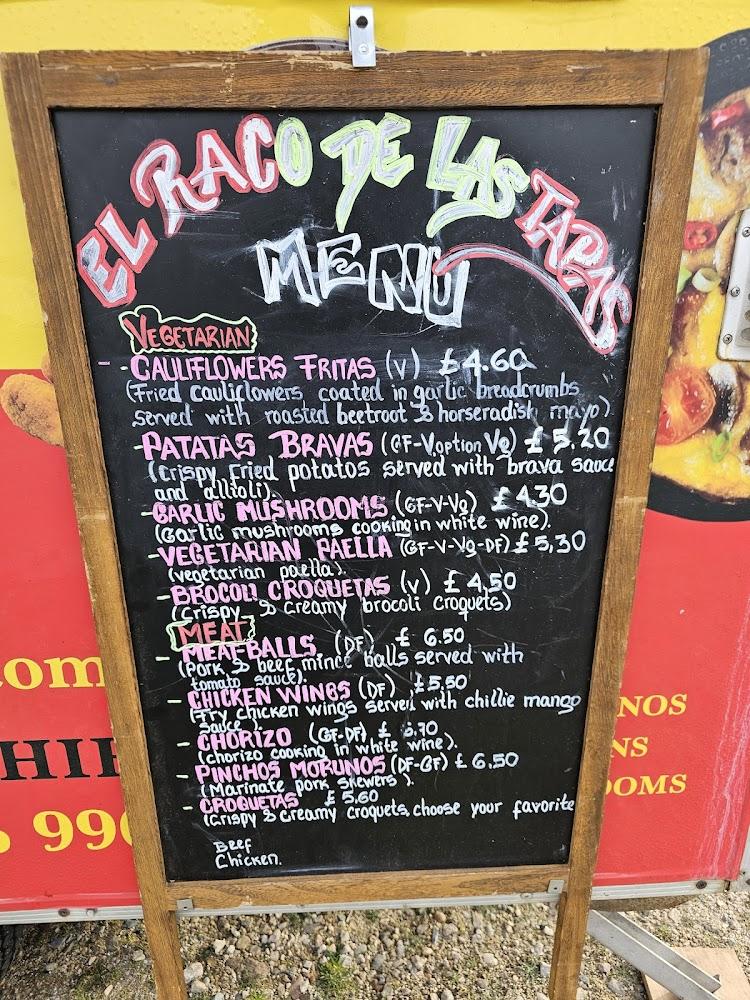 EL RACO DE LAS TAPAS
MENU
VEGETARIAN
- CAULIFLOWERS FRITAS (V) £4.60
(Fried cauliclowers coated in garlic breadcrumbs
served with roasted beetroot & horseradish mayo)
- PATATAS BRAVAS (GF-V option Vg) £ 5,20
(Crispy fried potatos served with brava sauce
and allioli).
- GARLIC MUSHROOMS (GF-V-Vg) £4.30
(Garlic mushrooms cooking in white wine).
- VEGETARIAN PAELLA (GF-V-Vg-DF) £ 5,30
(vegetarian paella).
- BROCOLI CROQUETAS (V) £ 4,50
(Crispy & creamy brocoli croquets)
MEAT
- MEATBALLS (DF) £ 6.50
(Pork & beef mince balls served with
tomato sauce).
- CHICKEN WINGS (DF) £5,50
(Fry chicken wings served with chillie mango
sauce).
- CHORIZO (GF-DF) £ .70
(chorizo cooking in white wine).
- PINCHOS MORUNOS (DF-GF) £ 6,50
(Marinate pork skewers).
- CROQUETAS £ 5,60
(Crispy & creamy croquets, choose your favorite
Beef
Chicken.
com
HIE
990
NOS
NS
OOMS